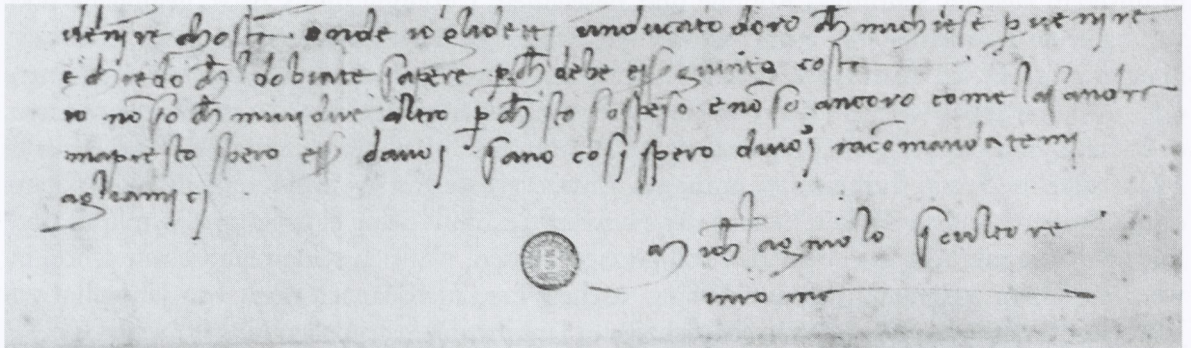 venire chosta onde io glidetti unducato doro ch̄ michiese p̱ venire
e chredo ch̄l dobiate sapere p̱ch̄ debe eſſ giunto costa
io nō so ch̄ mivi dire altro p̱ ch̄ sto sospeso e nō so ancora come lasandra
mapresto spero eſſ davoi sano cosi spero divoi racomandatemi
agliamici
mich̄lagniolo scultore
inroma